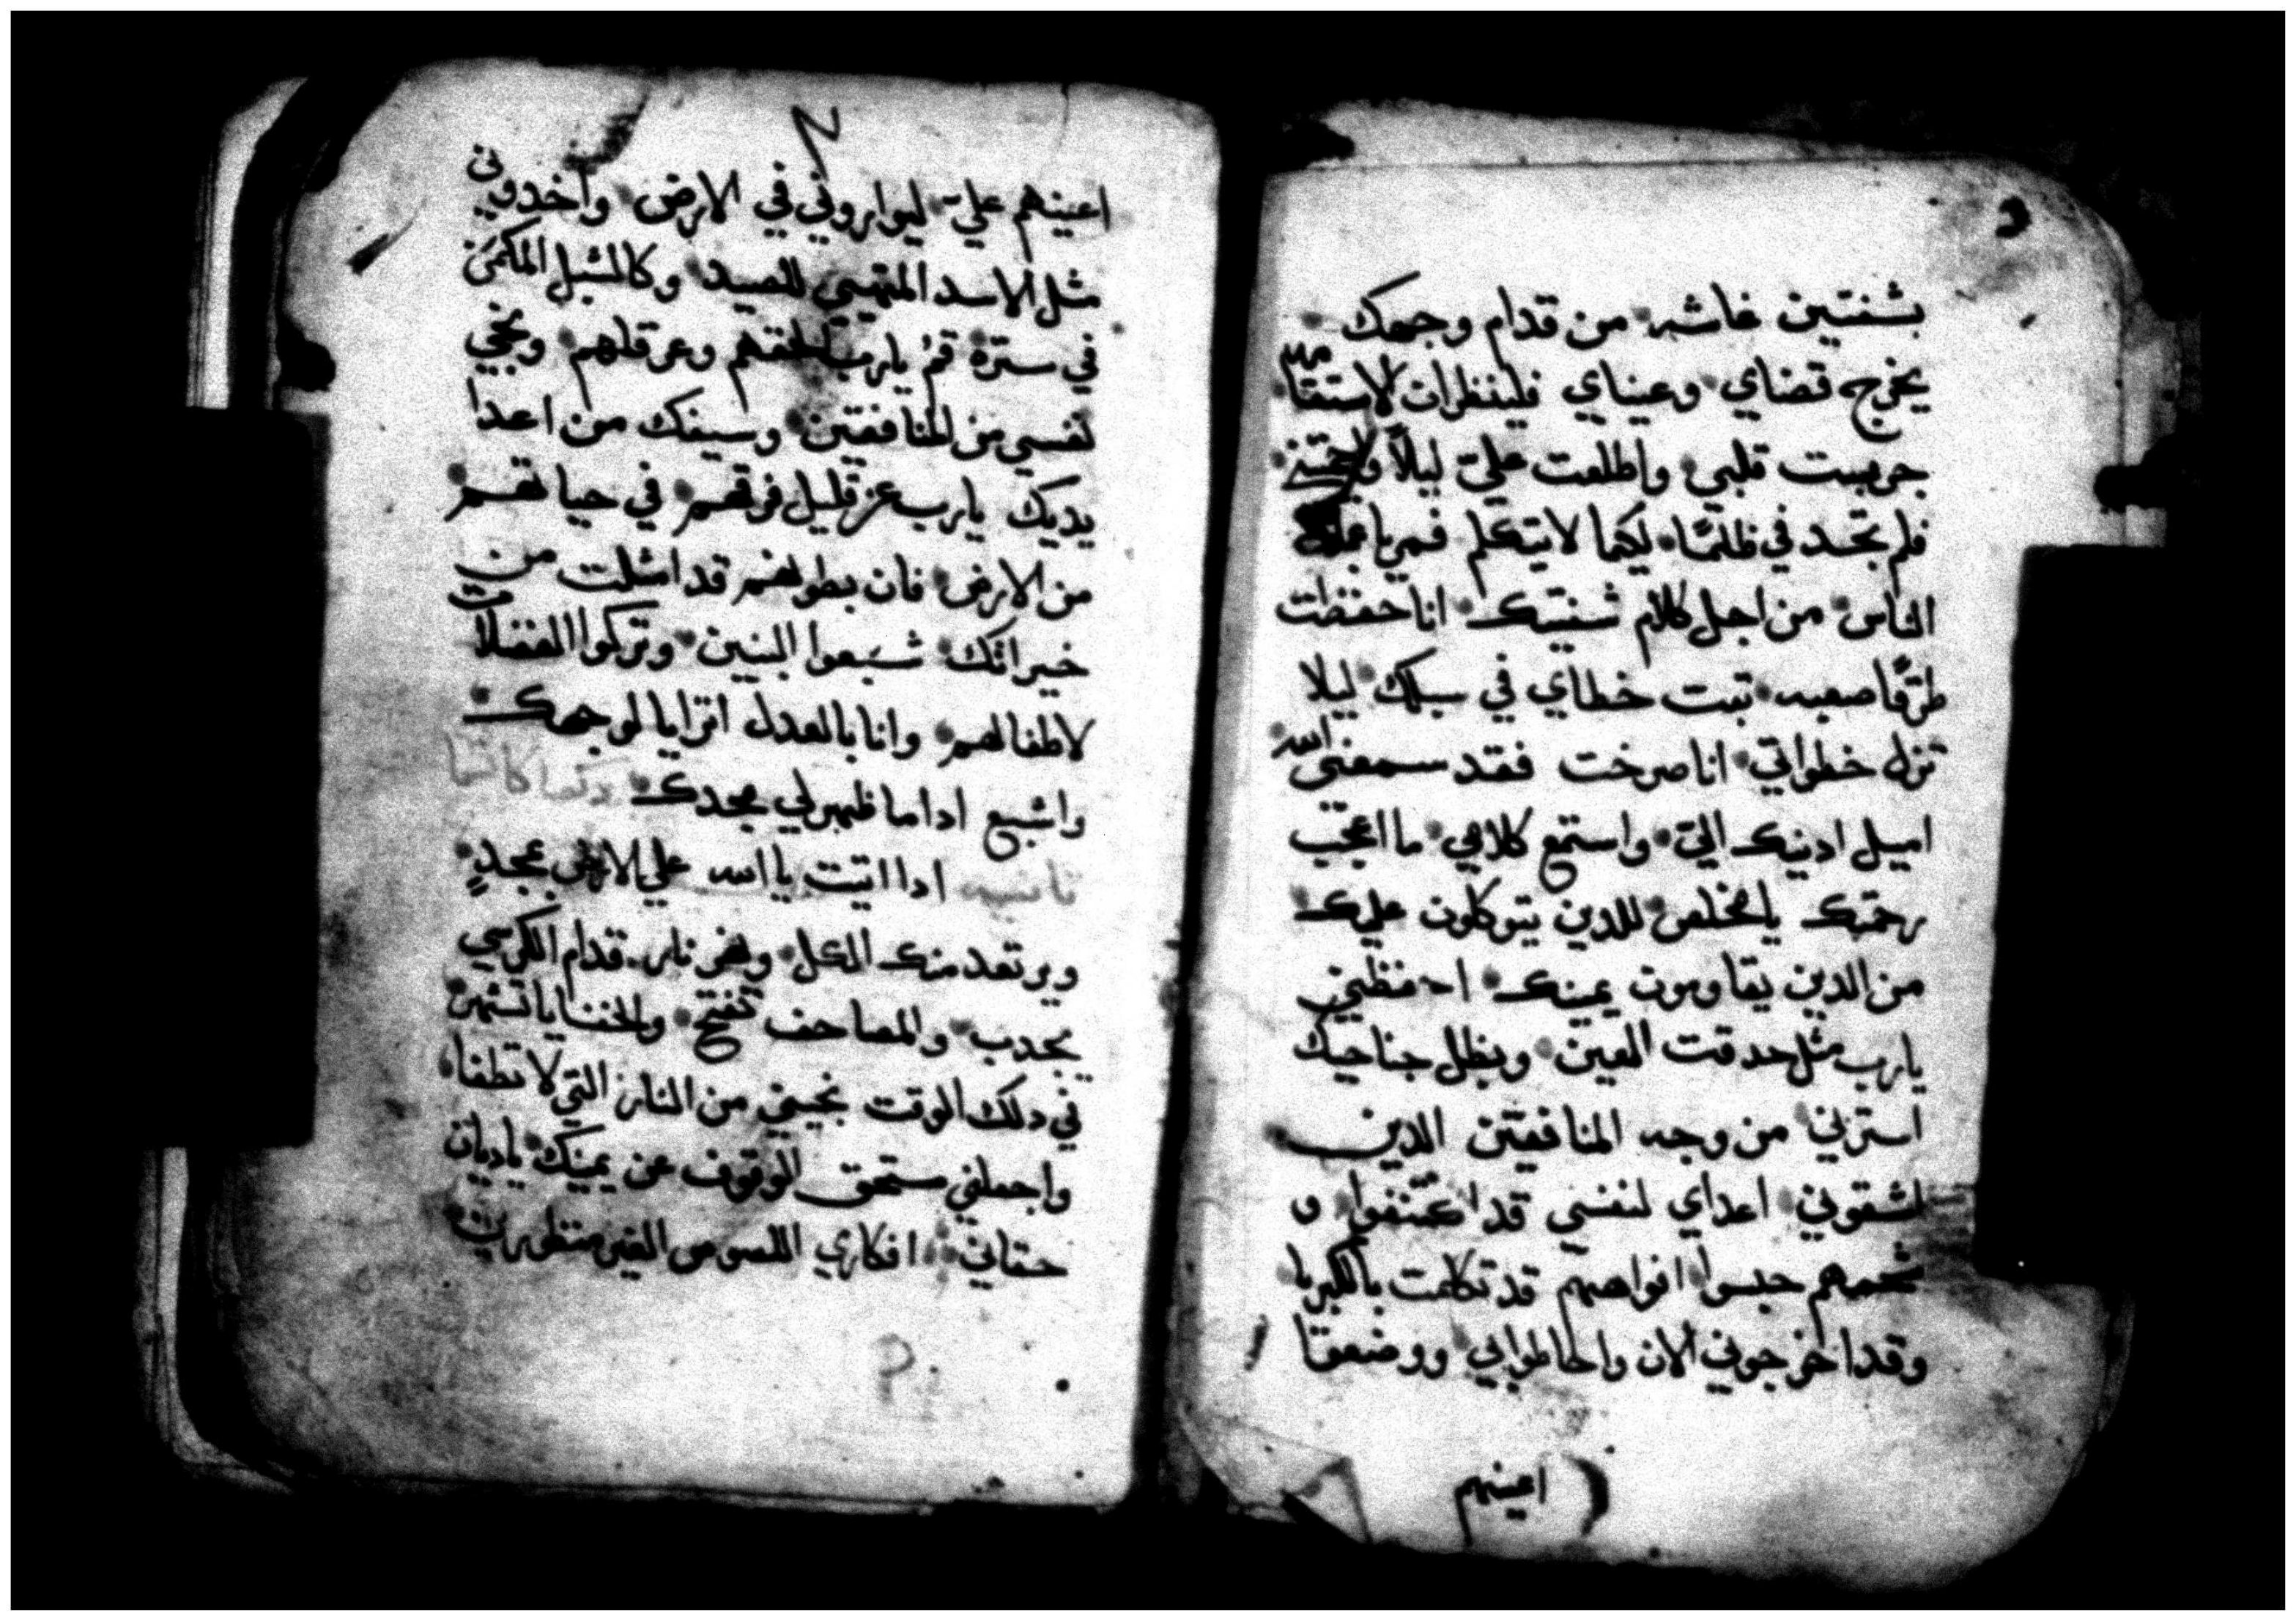 بشفتين غاشه من قدام وجهك
يخرج قضاي وعيناي فلينظرات لاستقامه
جربيت قلبي واطلعت عليّ ليلاً
فلم تجد في ظلمًا لكيما لا يتكلم فمي
الناس من اجل كلام شفتيك انا حفظت
طرقًا صعبه تبت خطاي في سبلك ليلا
تزل خطواتي انا صرخت فقد سمعتني الله
اميل ادنيك اليّ واستمع كلامي ما اعجب
رحمتك يا مخلص للدين يتوكلون عليك
من الدين يقاومون يمينك احفظني
يارب مثل حدقت العين وبظل جناحيك
استرني من وجه المنافقين الدين
اشقوني اعداي لنفسي قد اكتنفوا و
شحمهم حبسوا افواههم قد تكلمت بالكبريا
وقد اخرجوني الان واحاطوابي ووضعوا
اعينهم
اعينهم عليّ ليواروني في الارض واخدوني
مثل الاسد المتهيي للصيد وكالشبل المكمن
في سترة قمْ يارب الحقهم وعرقلهم ونجي
نفسي من المنافقين وسيفك من اعدا
يديك يارب عن قليل فرقهم في حياتهم
من الارض فان بطونهم قد امتلت من
خيراتك شبعوا البنين وتركوا الفضلات
لاطفالهم وانا بالعدل اترايا لوجهك
واشبع اداما ظهر لي مجدك
ادا اتيت يا الله علي الارض بمجدٍ
ويرتعد منك الكل ونهر نار قدام الكرسي
يجدب والمصاحف تفتح والخفايا تشهر
في دلك الوقت نجيني من النار التي لا تطفا
واجعلني مستحق الوقوف عن يمينك ياديان
حقاني افكاري اللصوص الغير منظورين